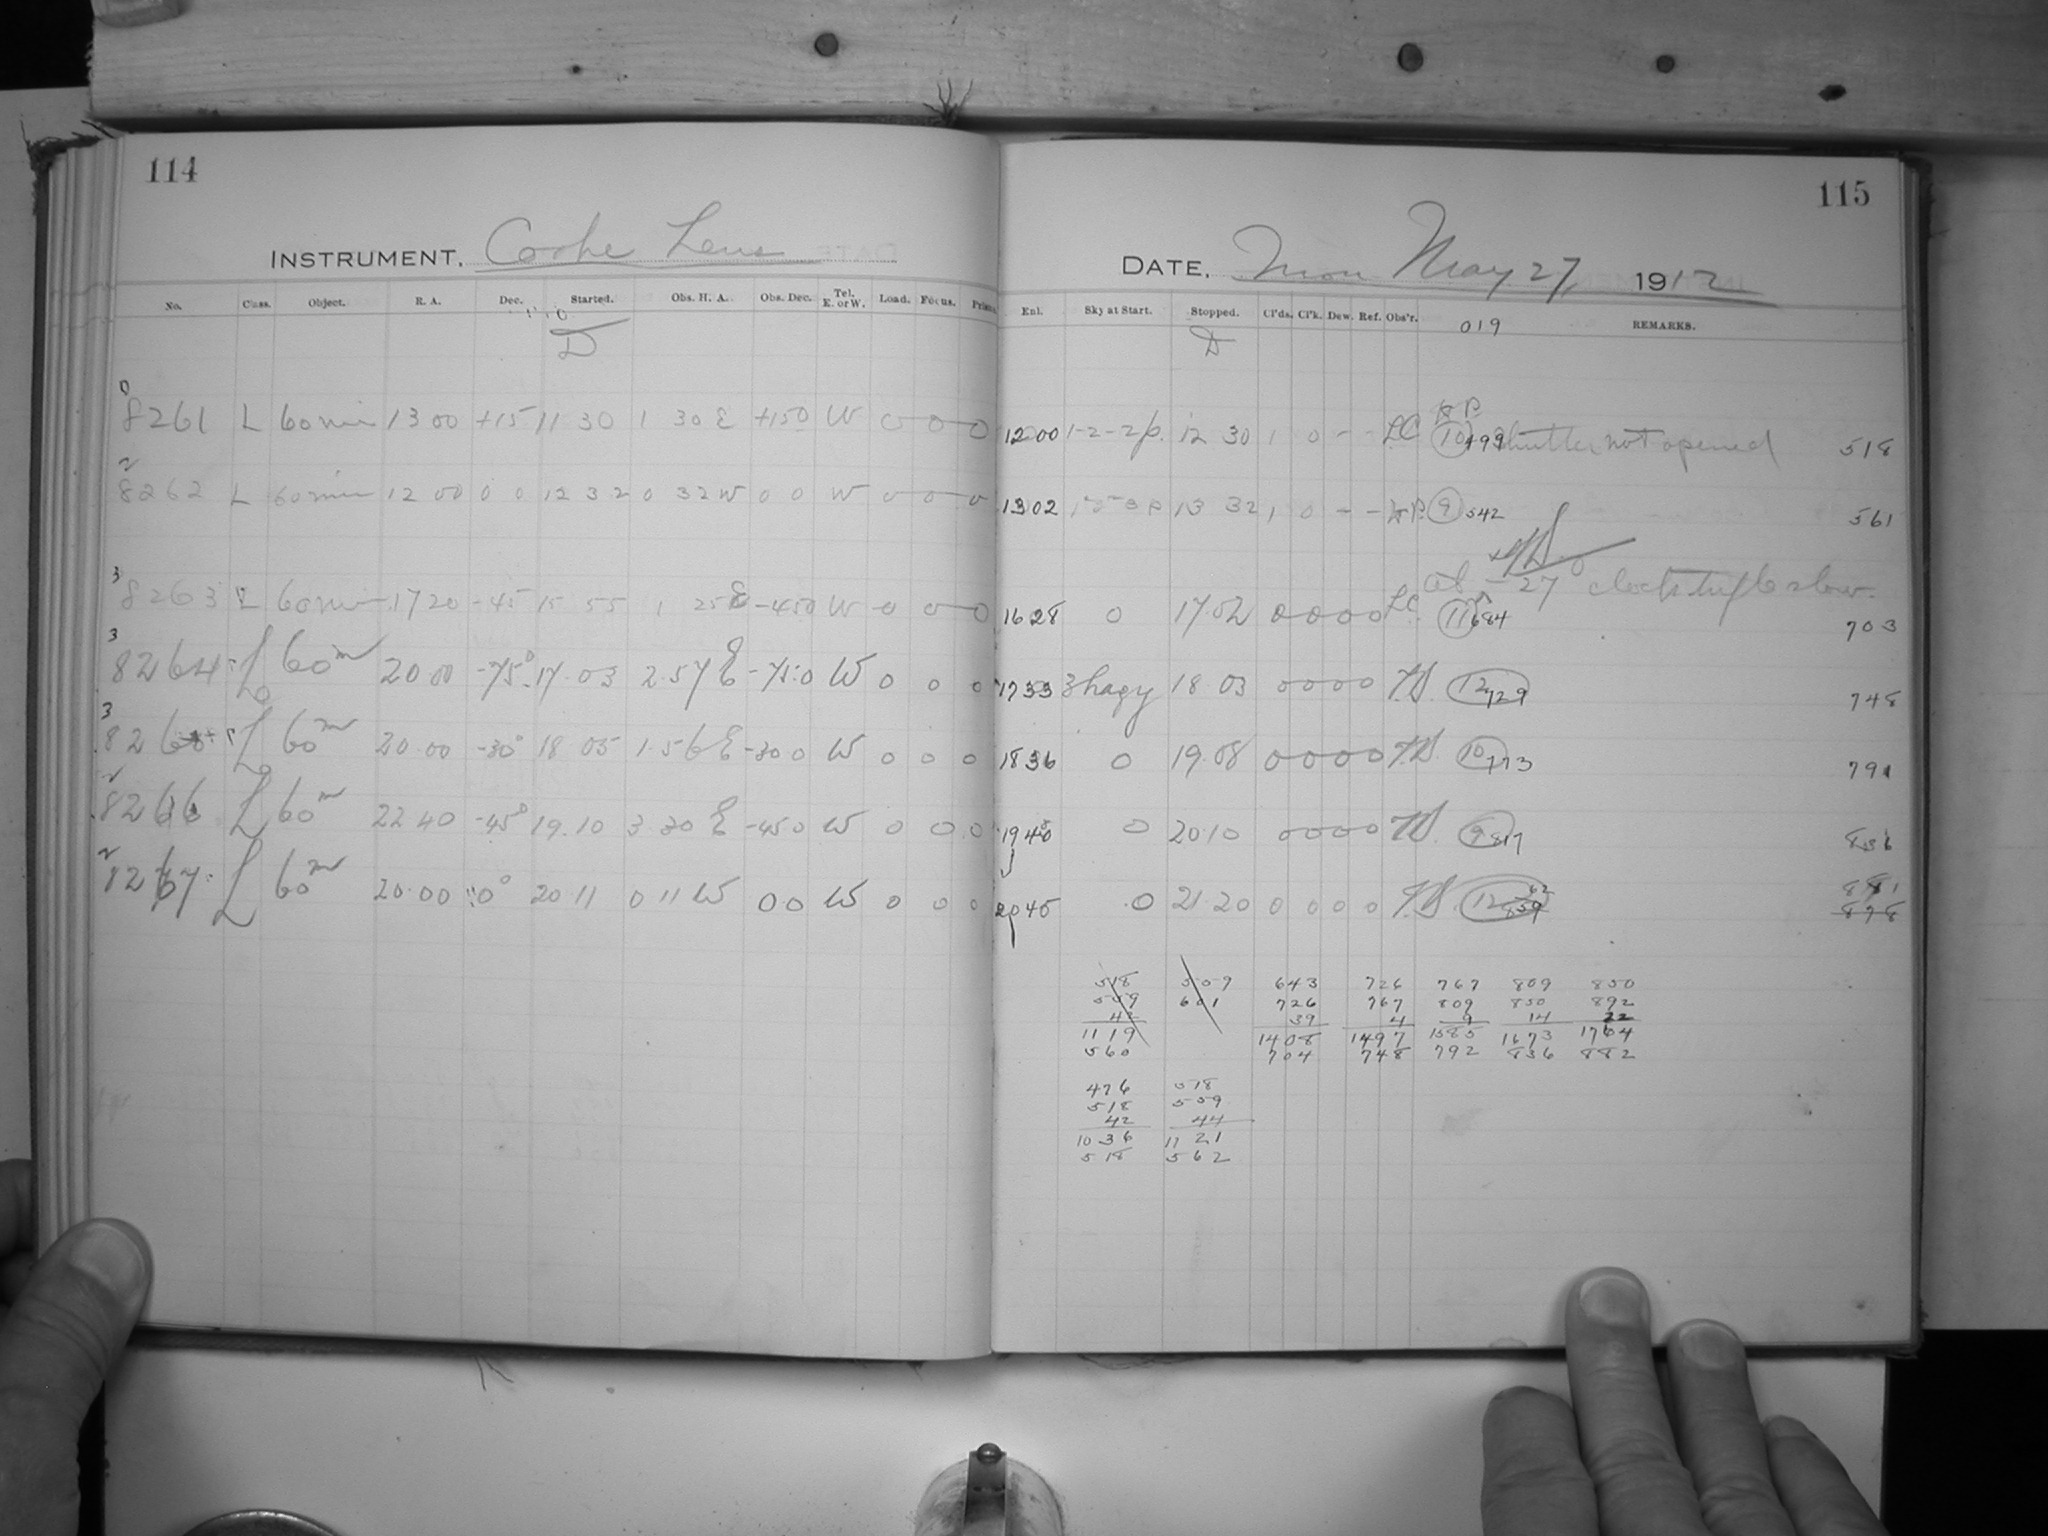 114
INSTRUMENT, Cooke Lens
No. Class. Object. R. A. Dec. Started. Obs. H. A. Obs. Dec. Tel. E. or W. Load. Focus. Prism.
D
0
8261 L 60 min 13 00 +15 11 30 1 30 E +15 0 W 0 0 0
2
8262 L 60 min 12 00 0 0 12 32 0 32 W 0 0 W 0 0 0
3
8263 L 60 min 17 20 -45 15 55 1 25 E -45 0 W 0 0 0
3
8264 L 60m 20 00 -75° 17.03 2.57 E -75.0 W 0 0 0
3
8265 L 60m 20.00 -30° 18 05 1.56 E -30 0 W 0 0 0
2
8266 L 60m 22 40 -45° 19.10 3 30 E -45 0 W 0 0 0
2
8267 L 60m 20.00 0° 20 11 0 11 W 0 0 W 0 0 0
115
DATE, Mon May 27, 1912
Enl. Sky at Start. Stopped. Cl'ds. Cl'k. Dew. Ref. Obs'r. 019 REMARKS.
D
1200 1-2-2p. 12 30 1 0 - - LC (10) 499 Shutter not opened 518
1302 13 32 1 0 - - (9) 542 561
at -27° clock
1628 0 17.02 0 0 0 0 LC (11) 684 703
1733 3 hazy 18 03 0 0 0 0 (12) 729 748
1836 0 19.08 0 0 0 0 (10) 773 791
1940 0 20 10 0 0 0 0 (9) 817 836
2045 0 21.20 0 0 0 0 (12) 859 62 881
878
518 559 643 726 767 809 850
559 601 726 767 809 850 892
42 39 4 9 14 22
1119 1408 1497 1585 1673 1764
560 704 748 792 836 882
476 518
518 559
42 44
1036 1121
518 562